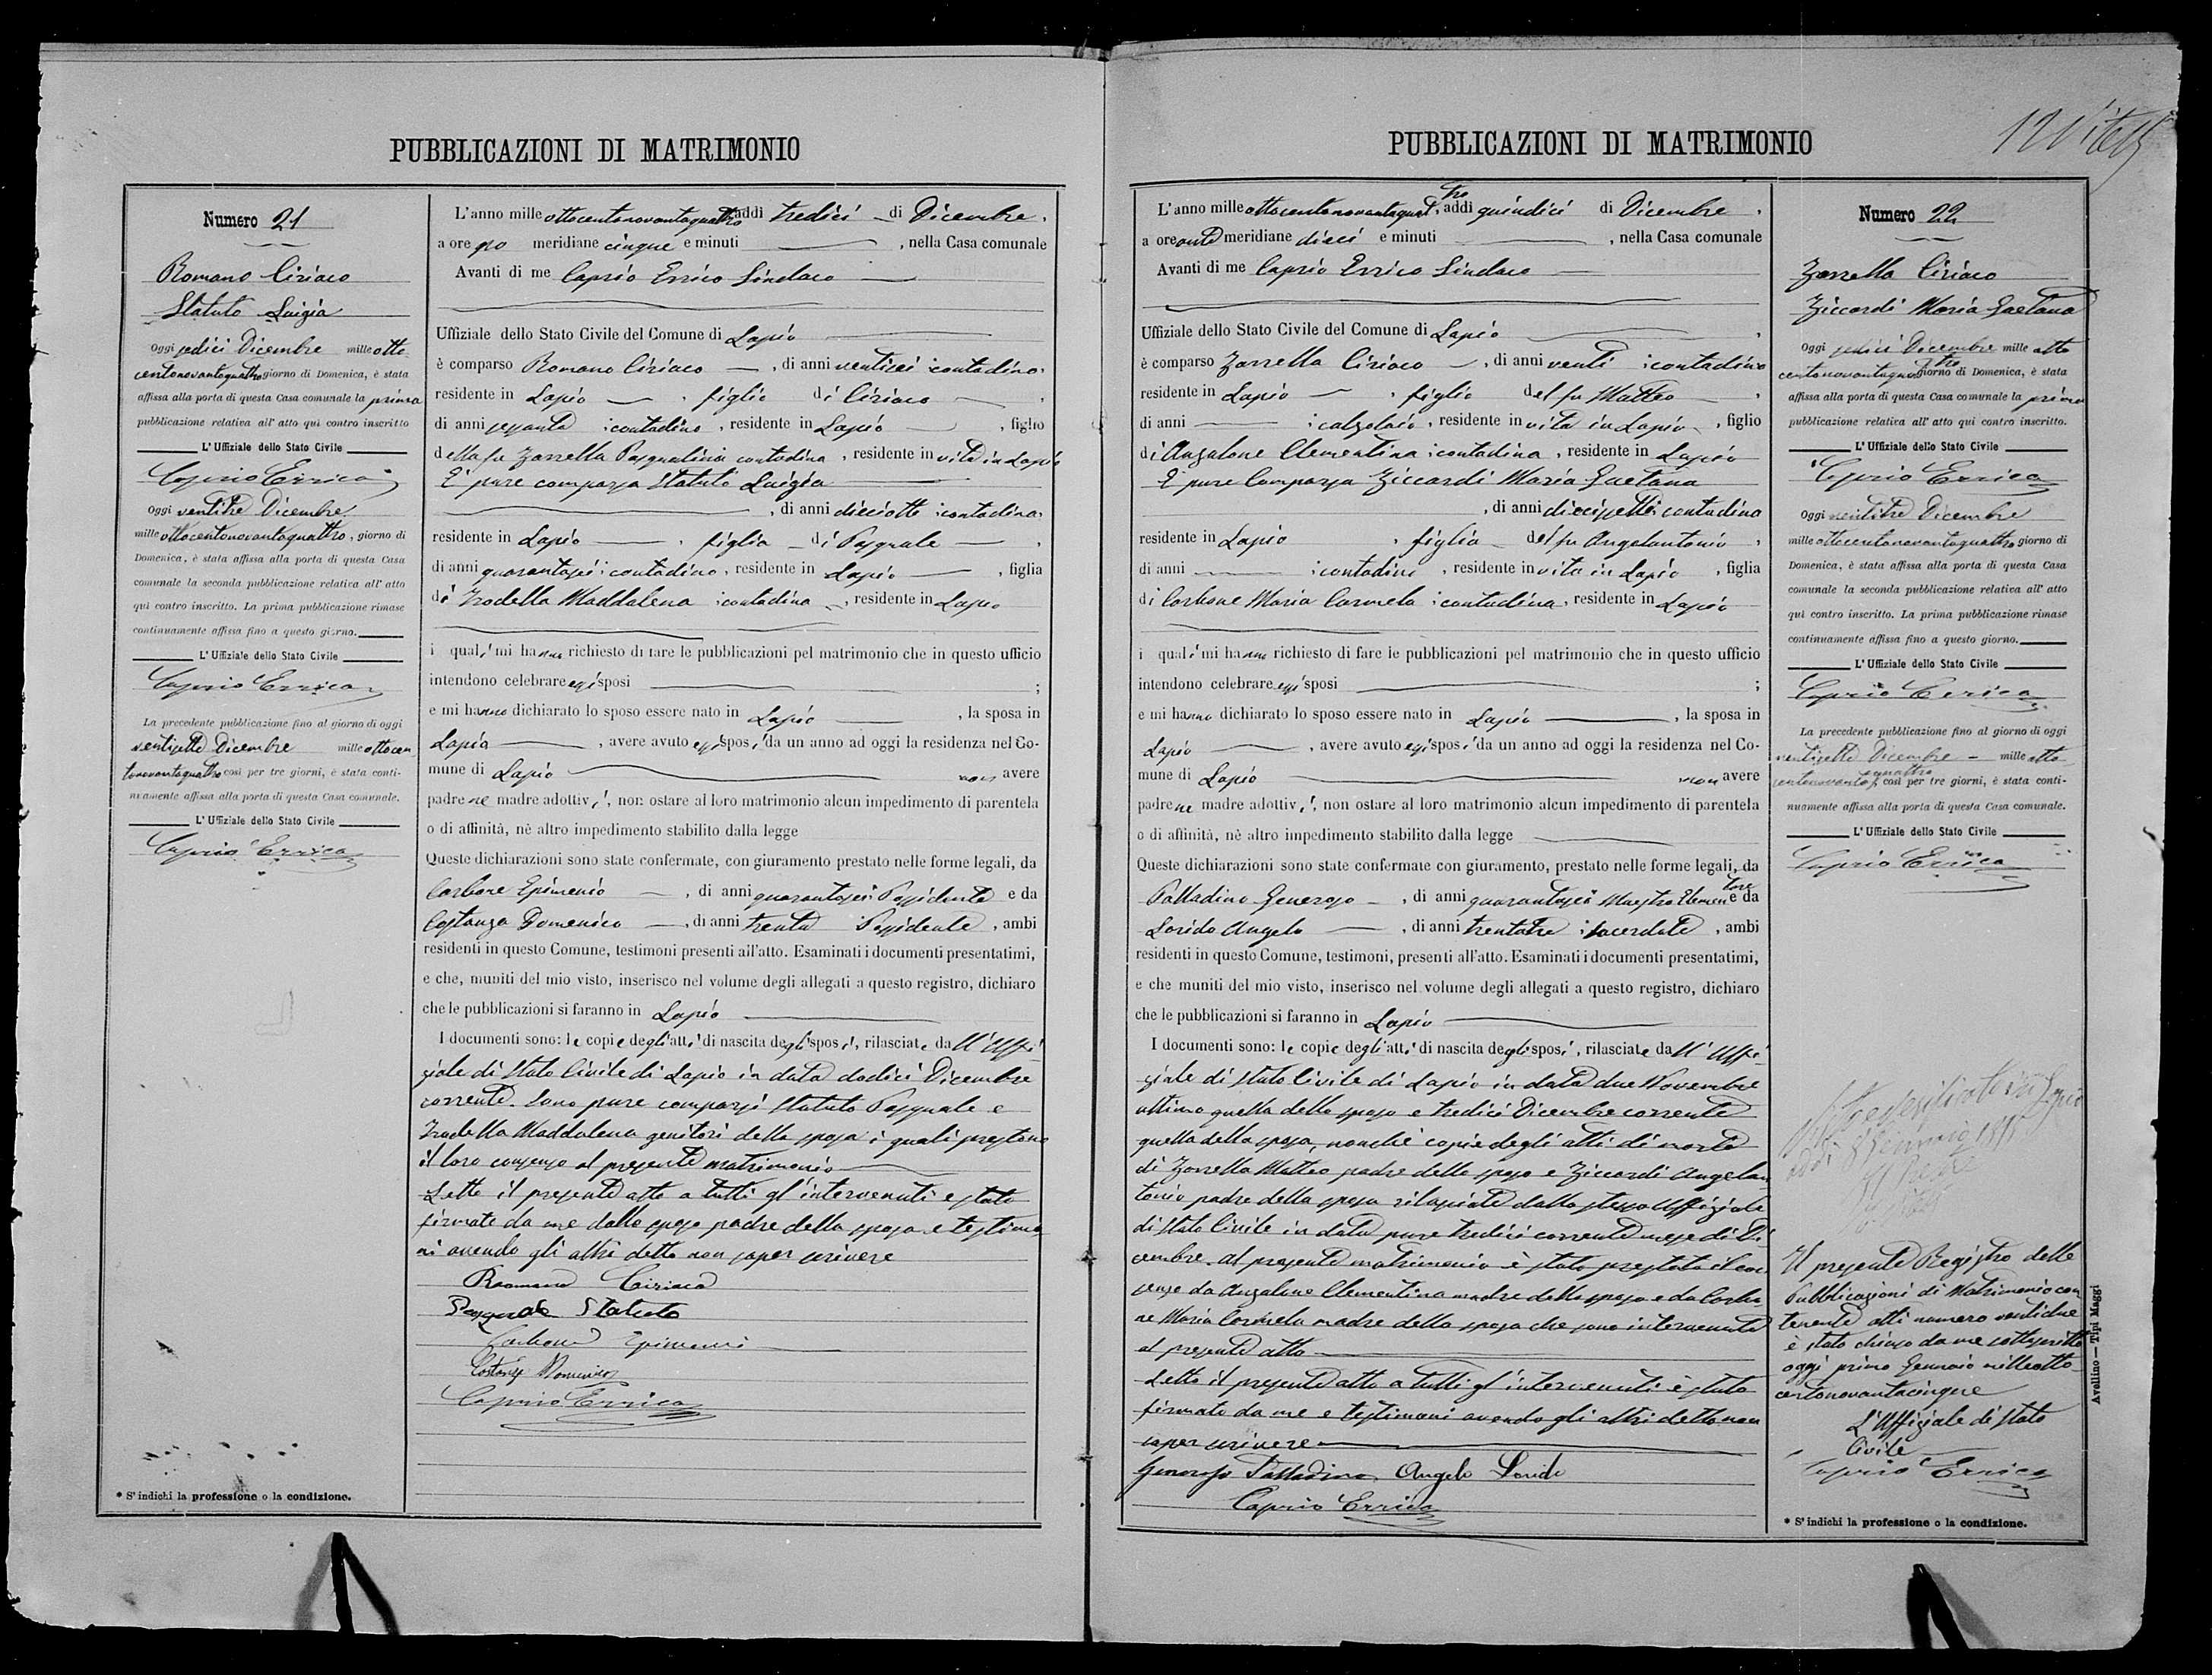 PUBBLICAZIONI DI MATRIMONIO
Numero 21
Romano Ciriaco
Statuto Luigia
Oggi sedici Dicembre mille otto
centonovantaquattro giorno di Domenica, è stata
affissa alla porta di questa Casa comunale la prima
pubblicazione relativa all' atto quì contro inscritto
L' Uffiziale dello Stato Civile
Caprio Errico
Oggi ventitre Dicembre
mille ottocentonovantaquattro, giorno di
Domenica, è stata affissa alla porta di questa Casa
comunale la seconda pubblicazione relativa all' atto
quì contro inscritto. La prima pubblicazione rimase
continuamente affissa fino a questo giorno.
L' Uffiziale dello Stato Civile
Caprio Errico
La precedente pubblicazione fino al giorno di oggi
ventisette Dicembre mille ottocen
tonovantaquattro così per tre giorni, è stata conti-
nuamente affissa alla porta di questa Casa comunale.
L' Uffiziale dello Stato Civile
Caprio Errico
* S' indichi la professione o la condizione.
L'anno mille ottocentonovantaquattro, addì tredici di Dicembre,
a ore po meridiane cinque e minuti , nella Casa comunale
Avanti di me Caprio Errico Sindaco
Uffiziale dello Stato Civile del Comune di Lapio
è comparso Romano Ciriaco , di anni ventisei contadino,
residente in Lapio , figlio di Ciriaco ,
di anni sessanta contadino , residente in Lapio , figlio
della fu Zarrella Pasqualina contadina , residente in vita in Lapio
E' pure comparsa Statuto Luigia
, di anni dieciotto contadina,
residente in Lapio , figlia di Pasquale ,
di anni quarantasei contadino, residente in Lapio , figlia
di Trodella Maddalena contadina , residente in Lapio
i quali mi hanno richiesto di fare le pubblicazioni pel matrimonio che in questo ufficio
intendono celebrare essi sposi ;
e mi hanno dichiarato lo sposo essere nato in Lapio , la sposa in
Lapio , avere avuto essi sposi da un anno ad oggi la residenza nel Co-
mune di Lapio non avere
padre ne madre adottivi, non ostare al loro matrimonio alcun impedimento di parentela
o di affinità, nè altro impedimento stabilito dalla legge
Queste dichiarazioni sono state confermate, con giuramento prestato nelle forme legali, da
Carbone Epimenio , di anni quarantasei Possidente e da
Costanza Domenico , di anni trenta Possidente , ambi
residenti in questo Comune, testimoni presenti all'atto. Esaminati i documenti presentatimi,
e che, muniti del mio visto, inserisco nel volume degli allegati a questo registro, dichiaro
che le pubblicazioni si faranno in Lapio
I documenti sono: le copie degli atti di nascita degli sposi, rilasciate da ll'Uffi-
ziale di Stato Civile di Lapio in data dodici Dicembre
corrente. Sono pure comparsi Statuto Pasquale e
Trodella Maddalena genitori della sposa i quali prestano
il loro consenso al presente matrimonio
Letto il presente atto a tutti gl'intervenuti è stato
firmato da me dallo sposo padre della sposa e testimo
ni avendo gli altri detto non saper scrivere
Romano Ciriaco
Pasquale Statuto
Carbone Epimenio
Costanza Domenico
Caprio Errico
PUBBLICAZIONI DI MATRIMONIO
L'anno mille ottocentonovantaquattro, addì quindici di Dicembre ,
a ore ante meridiane dieci e minuti , nella Casa comunale
Avanti di me Caprio Errico Sindaco
Uffiziale dello Stato Civile del Comune di Lapio ,
è comparso Zarrella Ciriaco , di anni venti contadino
residente in Lapio , figlio del fu Matteo ,
di anni calzolaio , residente in vita in Lapio , figlio
di Angalone Clementina contadina , residente in Lapio
E' pure Comparsa Ziccardi Maria Gaetana
, di anni diecissette contadina
residente in Lapio , figlia del fu Angelantonio ,
di anni contadino , residente in vita in Lapio , figlia
di Carbone Maria Carmela contadina, residente in Lapio
i quali mi hanno richiesto di fare le pubblicazioni pel matrimonio che in questo ufficio
intendono celebrare essi sposi ;
e mi hanno dichiarato lo sposo essere nato in Lapio , la sposa in
Lapio , avere avuto essi sposi da un anno ad oggi la residenza nel Co-
mune di Lapio non avere
padre ne madre adottivi, non ostare al loro matrimonio alcun impedimento di parentela
o di affinità, nè altro impedimento stabilito dalla legge
Queste dichiarazioni sono state confermate con giuramento, prestato nelle forme legali, da
Palladino Generoso , di anni quarantasei Maestro Elementare e da
Lorido Angelo , di anni trentatre sacerdote , ambi
residenti in questo Comune, testimoni, presenti all'atto. Esaminati i documenti presentatimi,
e che muniti del mio visto, inserisco nel volume degli allegati a questo registro, dichiaro
che le pubblicazioni si faranno in Lapio
I documenti sono: le copie degli atti di nascita degli sposi, rilasciate da ll'Uffi-
ziale di Stato Civile di Lapio in data due Novembre
ultimo quella dello sposo e tredici Dicembre corrente
quella della sposa, nonchè copie degli atti di morte
di Zarrella Matteo padre dello sposo e Ziccardi Angelan
tonio padre della sposa rilasciate dallo stesso Uffiziale
di Stato Civile in data pure tredici corrente mese di Di
cembre. Al presente matrimonio è stato prestato il con
senso da Angalone Clementina madre dello sposo e da Carbo
ne Maria Carmela madre della sposa che sono intervenute
al presente atto
Letto il presente atto a tutti gl'intervenuti è stato
firmato da me e testimoni avendo gli altri detto non
saper scrivere
Generoso Palladino Angelo Lorido
Caprio Errico
Numero 22
Zarrella Ciriaco
Ziccardi Maria Gaetana
Oggi sedici Dicembre mille otto
centonovantaquattro giorno di Domenica, è stata
affissa alla porta di questa Casa comunale la prima
pubblicazione relativa all' atto quì contro inscritto.
L' Uffiziale dello Stato Civile
Caprio Errico
Oggi ventitre Dicembre
mille ottocentonovantaquattro giorno di
Domenica, è stata affissa alla porta di questa Casa
comunale la seconda pubblicazione relativa all' atto
quì contro inscritto. La prima pubblicazione rimase
continuamente affissa fino a questo giorno.
L' Uffiziale dello Stato Civile
Caprio Errico
La precedente pubblicazione fino al giorno di oggi
ventisette Dicembre mille otto
centonovantaquattro, così per tre giorni, è stata conti-
nuamente affissa alla porta di questa Casa comunale.
L' Uffiziale dello Stato Civile
Caprio Errico
Il presente Registro delle
Pubblicazioni di Matrimonio con
tenente atti numero ventidue
è stato chiuso da me sottoscritto
oggi primo Gennaio milleotto
centonovantacinque
L'Uffiziale di Stato
Civile
Caprio Errico
* S' indichi la professione o la condizione.
Avellino — Tipi Maggi